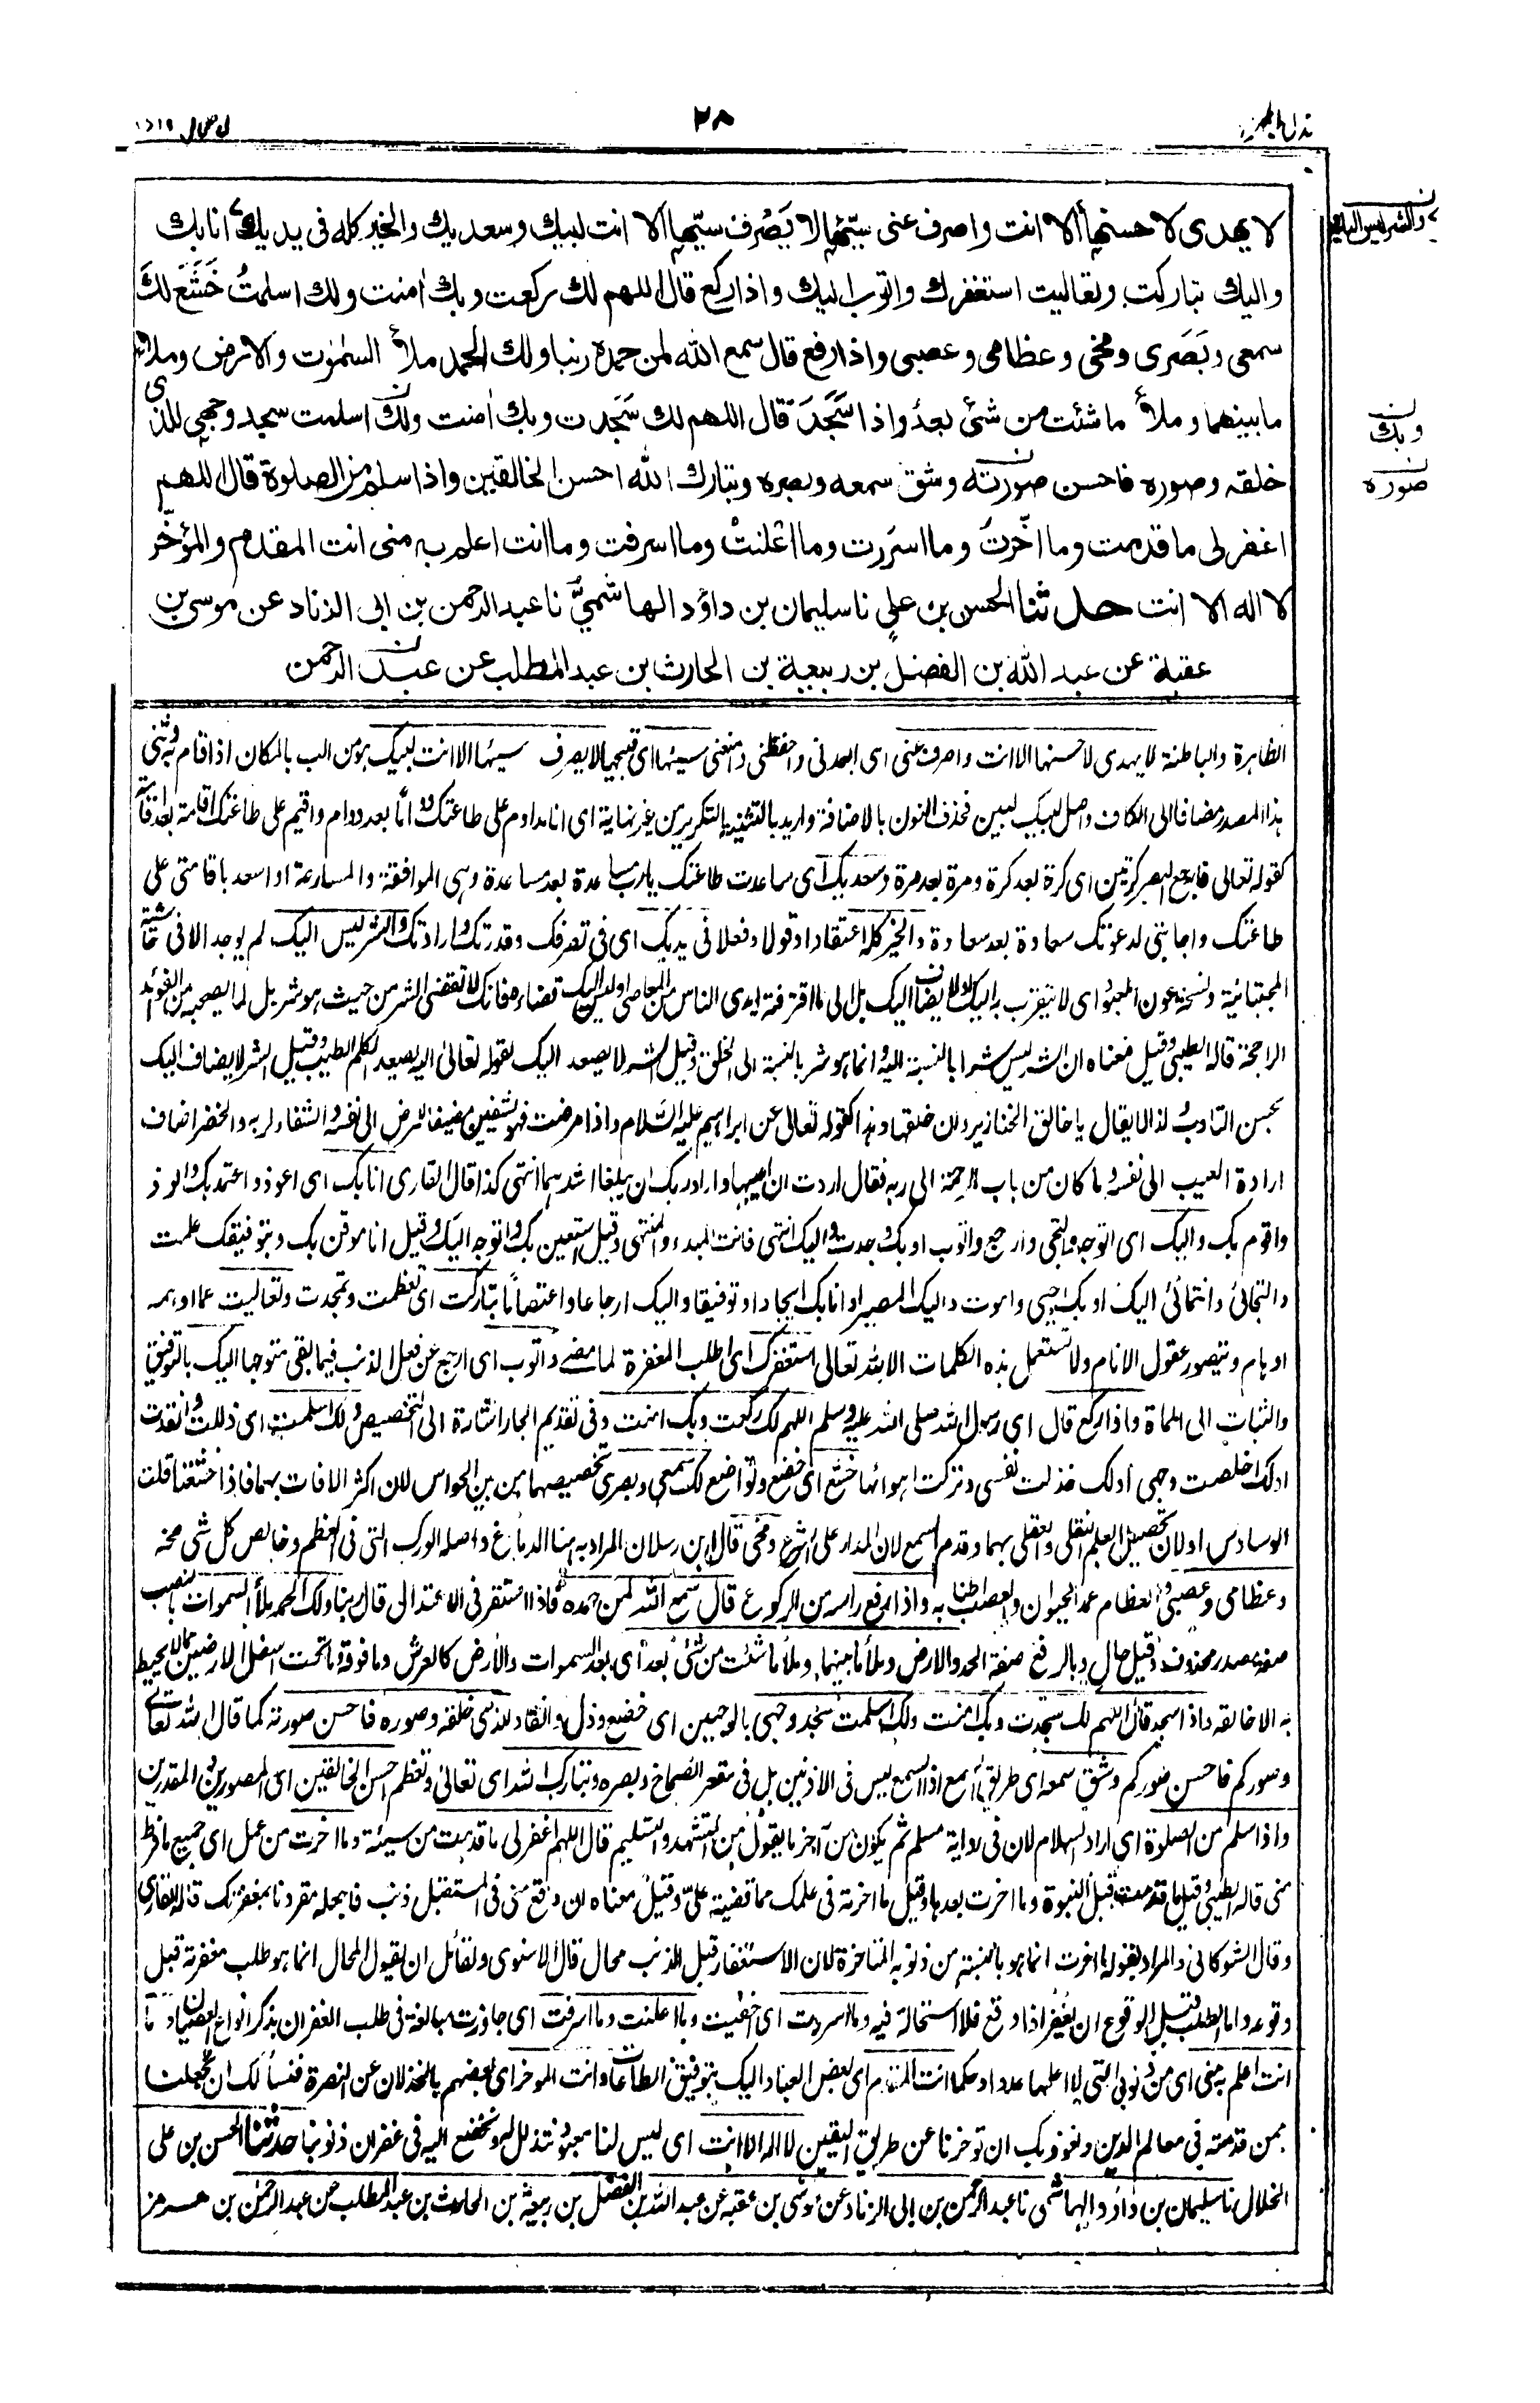 ٢٨
لا يهدى لاحسنها الا انت واصرف عنى سيّئها لا يَصْرف سيّئها الا انت لبيك وسعديك والخير كله فى يديك انا بك
واليك تباركت وتعاليت استغفرك واتوب اليك واذا ركع قال اللهم لك ركعت وبك اٰمنت ولك اسلمتُ خَشَعَ لكَ
سمعى وبَصَرى ومخى وعظامى وعصبى واذا رفع قال سمع الله لمن حمده ربنا ولك الحمد ملأ السمٰوٰت والارض وملأ
ما بينهما وملأ ما شئت من شئ بعدُ واذا سَجَدَ قال اللهم لك سَجَدت وبك اٰمنت ولك اسلمت سجد وجهى للذى
خلقه وصوره فاحسن صورته وشق سمعه وبصره وتبارك الله احسن الخالقين واذا سلم من الصلوة قال اللهم
اغفر لى ما قدمت وما اخّرتُ وما اسررت وما اعْلنتْ وما اسرفت وما انت اعلم به منى انت المقدم والمؤخّر
لا اله الا انت حدثنا الحسن بن على نا سليمان بن داؤد الهاشمىّ نا عبد الرحمن بن ابى الزناد عن موسى بن
عقبة عن عبد الله بن الفضل بن ربيعة بن الحارث بن عبد المطلب عن عبد الرحمن
ن
والشر ليس اليك
ن
وبك
ن
صوره
الظاهرة والباطنة لا يهدى لاحسنها الا انت واصرف عنى اى ابعدنى واحفظنى وامنعنى سيئها اى قبيحها لا يصرف سيئها الا انت لبيك هو من الب بالمكان اذا اقام به وثنى
هذا المصدر مضافا الى الكاف واصل لبيك لبين فحذف النون بالاضافة واريد بالتثنية التكرير من غير نهاية اى انا مداوم على طاعتك دواما بعد دوام واقيم على طاعتك اقامة بعد اقامة
كقوله تعالى فارجع البصر كرتين اى كرة بعد كرة ومرة بعد مرة وسعديك اى ساعدت طاعتك يا رب مساعدة بعد مساعدة وهى الموافقة والمسارعة او اسعد باقامتى على
طاعتك واجابتى لدعوتك سعادة بعد سعادة والخير كله اعتقادا وقولا وفعلا فى يديك اى فى تصرفك وقدرتك وارادتك والشر ليس اليك لم يوجد الا فى حاشية
المجتبائية ونسخة عون المعبود اى لا يتقرب به اليك او لا يضاف اليك بل الى ما اقترفته ايدى الناس من المعاصى او ليس اليك قضاءه فانك لا تقضى الشر من حيث هو شر بل لما يصحبه من الفوائد
الراجحة قاله الطيبى وقيل معناه ان الشر ليس شرا بالنسبة اليه وانما هو شر بالنسبة الى الخلق وقيل الشر لا يصعد اليك لقوله تعالى اليه يصعد الكلم الطيب وقيل الشر لا يضاف اليك
بحسن التادب لذا لا يقال يا خالق الخنازير وان خلقها وهذا كقوله تعالى عن ابراهيم عليه السلام واذا مرضت فهو يشفين يضيف المرض الى نفسه والشفاء لربه والخضر اضاف
ارادة العيب الى نفسه وما كان من باب الرحمة الى ربه فقال اردت ان اعيبها واراد ربك ان يبلغا اشدهما انتهى كذا قال القارى انا بك اى اعوذ واعتمد بك والوذ
واقوم بك واليك اى اتوجه والتجى وارجع واتوب او بك وجدت واليك انتهى فانت المبدء والمنتهى وقيل استعين بك واتوجه اليك وقيل انا موقن بك وبتوفيقك علمت
والتجائى وانتمائى اليك او بك احيى واموت واليك المصير او انا بك ايجادا وتوفيقا واليك ارجاعا واعتصاما تباركت اى تعظمت وتمجدت وتعاليت عما اوهمه
اوهام وتتصور عقول الانام ولا تستعمل هذه الكلمات الا لله تعالى استغفرك اى اطلب المغفرة لما مضى واتوب اى ارجع عن فعل الذنب فيما بقى متوجها اليك بالتوفيق
والثبات الى المماة واذا ركع قال اى رسول الله صلى الله عليه وسلم اللهم لك ركعت وبك امنت وفى تقديم الجار اشارة الى التخصيص ولك اسلمت اى ذللت وانقدت
او لك اخلصت وجهى او لك خذلت نفسى وتركت اهوائها خشع اى خضع وتواضع لك سمعى وبصرى تخصيصهما من بين الحواس لان اكثر الافات بهما فاذا خشعتا قلت
الوساوس او لان تحصيل العلم النقلى والعقلى بهما وقدم السمع لان المدار على الشرع ومخى قال ابن رسلان المراد به هنا الدماغ واصله الودك التى فى العظم وخالص كل شى مخه
وعظامى وعصبى والعظام عمد الحيوان والعصب اطنابه واذا رفع راسه من الركوع قال سمع الله لمن حمده فاذا استقر فى الاعتدال قال ربنا ولك الحمد ملأ السموات بالنصب
صفة مصدر محذوف وقيل حال وبالرفع صفة الحمد والارض وملأ ما بينهما وملأ ما شئت من شئ بعد اى بعد السموات والارض كالعرش وما فوقه وما تحت اسفل الارضين مما لا يحيط
به الا خالقه واذا سجد قال اللهم لك سجدت وبك امنت ولك اسلمت سجد وجهى بالوجهين اى خضع وذل وانقاد للذى خلقه وصوره فاحسن صورته كما قال الله تعالى
وصوركم فاحسن صوركم وشق سمعه اى طريق السمع اذ السمع ليس فى الاذنين بل فى مقعر الصماخ وبصره وتبارك الله اى تعالى وتعظم احسن الخالقين اى المصورين والمقدرين
واذا سلم من الصلوة اى اراد السلام لان فى رواية مسلم ثم يكون من آخر ما يقول بين التشهد والتسليم قال اللهم اغفر لى ما قدمت من سيئة وما اخرت من عمل اى جميع ما فرط
منى قاله الطيبى وقيل ما قدمت قبل النبوة وما اخرت بعدها وقيل ما اخرته فى علمك مما قضيته علىّ وقيل معناه ان وقع منى فى المستقبل ذنب فاجعله مقرونا بمغفرتك قاله القارى
وقال الشوكانى والمراد بقوله ما اخرت انما هو بالنسبة من ذنوبه المتاخرة لان الاستغفار قبل الذنب محال قال الاسنوى ولقائل ان يقول المحال انما هو طلب مغفرته قبل
وقوعه واما الطلب قبل الوقوع ان يغفر اذا وقع فلا استحالة فيه وما اسررت اى اخفيت وما اعلنت وما اسرفت اى جاوزت مبالغة فى طلب الغفران بذكر انواع العصيان وما
انت اعلم به منى اى من ذنوبى التى لا اعلمها عددا وحكما انت المقدم اى لبعض العباد اليك بتوفيق الطاعات وانت الموخر اى لبعضهم بالخذلان عن النصرة فنسألك ان تجعلنا
ممن قدمته فى معالم الدين ونعوذ بك ان توخرنا عن طريق اليقين لا اله الا انت اى ليس لنا معبود نتذلل له ونخضع اليه فى غفران ذنوبنا حدثنا الحسن بن على
الخلال نا سليمان بن داؤد الهاشمى نا عبد الرحمن بن ابى الزناد عن موسى بن عقبة عن عبد الله بن الفضل بن ربيعة بن الحارث بن عبد المطلب عن عبد الرحمن بن هرمز